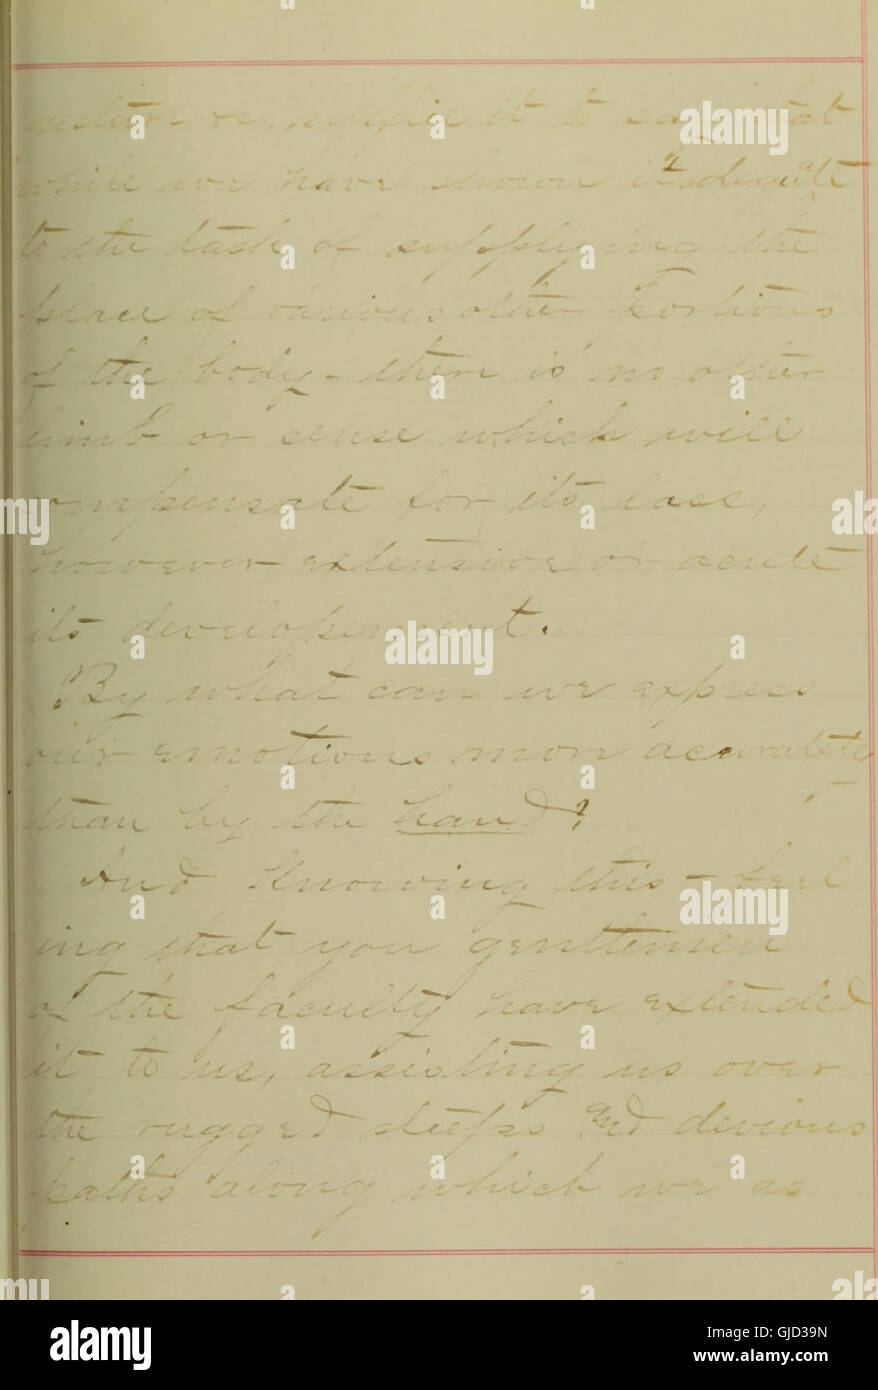 suffice it to say that
while we have shown it adequate
to the task of supplying the
place of various other portions
of the body - there is no other
limb or sense which will
compensate for its loss,
however extensive or acute
its developement.
By what can we express
our emotions more accurately
than by the hand?
And Knowing this - feel
ing that you gentlemen
of the faculty have extended
it to us, assisting us over
the rugged steeps and devious
paths along which we as
alamy
alamy stock photo
GJD39N
www.alamy.com